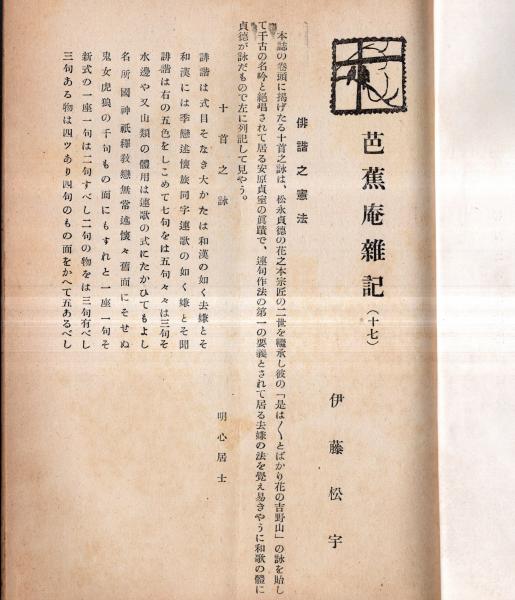 芭蕉庵雜記（十七）
伊藤松宇
俳諧之憲法
本誌の卷頭に揭げたる十首之詠は、松永貞德の花之本宗匠の二世を繼承し彼の「是は〱とばかり花の吉野山」の詠を貽し
て千古の名吟と絕唱されて居る安原貞室の眞蹟で、連句作法の第一の要義とされて居る去嫌の法を覺え易きやうに和歌の體に
貞德が詠だもので左に列記して見やう。
十首之詠
明心居士
誹諧は式目そなき大かたは和漢の如く去嫌とそ
和漢には季戀述懷旅同字連歌の如く嫌とそ聞
誹諧は右の五色をしこめて七句をは五句々々は三句そ
水邊や又山類の體用は連歌の式にたかひてもよし
名所國神祇釋敎戀無常述懷々舊面にそせぬ
鬼女虎狼の千句もの面にもすれと一座一句そ
新式の一座一句は二句すべし二句の物をは三句有べし
三句ある物は四ツあり四句のもの面をかへて五あるべし